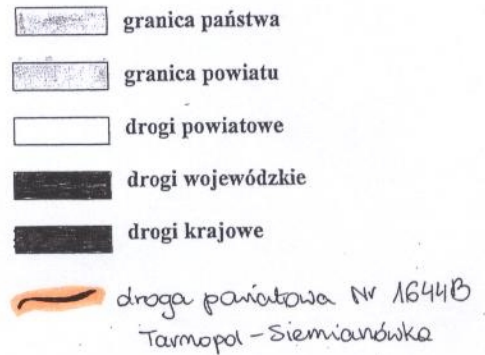 granica państwa
granica powiatu
drogi powiatowe
drogi wojewódzkie
drogi krajowe
droga powiatowa Nr 1644B
Tarnopol - Siemianówka